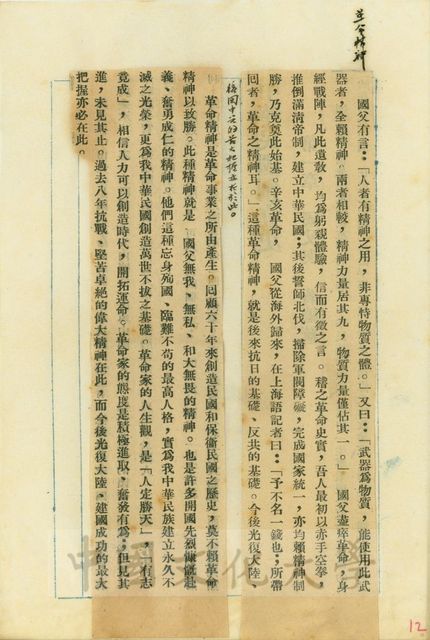 革命精神
國父有言：「人者有精神之用，非專恃物質之體。」又曰：「武器爲物質，能使用此武
器者，全賴精神。兩者相較，精神力量居其九，物質力量僅佔其一。」　國父盡瘁革命，身
經戰陣，凡此遺敎，均爲躬親體驗，信而有徵之言。稽之革命史實，吾人最初以赤手空拳，
推倒滿淸帝制，建立中華民國；其後誓師北伐，掃除軍閥障礙，完成國家統一，亦均賴精神制
勝，乃克奠此始基。辛亥革命，　國父從海外歸來，在上海語記者曰：「予不名一錢也；所帶
囘者，革命之精神耳。」這種革命精神，就是後來抗日的基礎、反共的基礎。今後光復大陸、
革命精神是革命事業之所由產生。囘顧六十年來創造民國和保衞民國之歷史，莫不賴革命
精神以致勝。此種精神就是　國父無我、無私、和大無畏的精神。也是許多開國先烈慷慨赴
義、奮勇成仁的精神。他們這種忘身殉國、臨難不苟的最高人格，實爲我中華民族建立永久不
滅之光榮，更爲我中華民國創造萬世不拔之基礎。革命家的人生觀，是「人定勝天」，「有志
竟成」，相信人力可以創造時代，開拓運命。革命家的態度是積極進取、奮發有爲；但見其
進，未見其止。過去八年抗戰、堅苦卓絕的偉大精神在此，而今後光復大陸、建國成功的最大
把握亦必在此。
中國文化大學
12